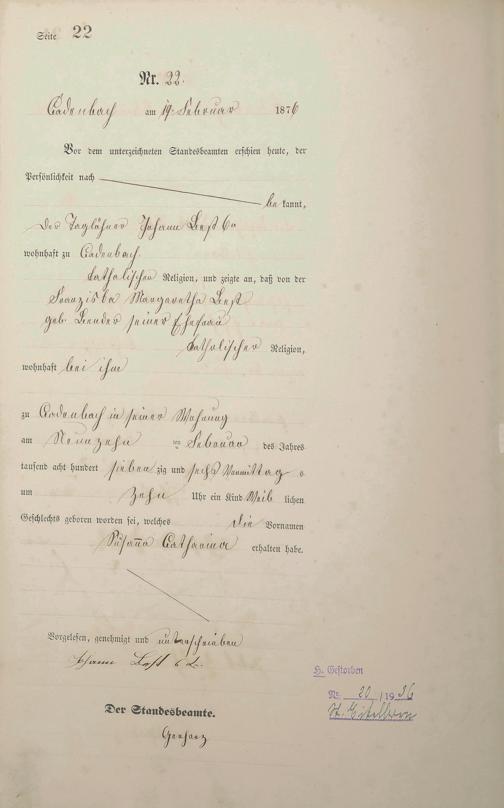 Seite 22
Nr. 22.
Cadenbach am 19. Februar 1876
Vor dem unterzeichneten Standesbeamten erschien heute, der
Persönlichkeit nach
bekannt,
der Taglöhner Johann
wohnhaft zu Cadenbach
katholischer Religion, und zeigte an, daß von der
Franziska Margaretha
geb. Bender seiner Ehefrau
katholischer Religion,
wohnhaft bei ihm
zu Cadenbach in seiner Wohnung
am Neunzehn ten Februar des Jahres
tausend acht hundert siebenzig und sechs Vormittags
um zehn Uhr ein Kind Weiblichen
Geschlechts geboren worden sei, welches die Vornamen
Susanna Catharina erhalten habe.
Vorgelesen, genehmigt und unterschrieben
Johann
Der Standesbeamte.
H. Gestorben
Nr. 20 / 1936
St.